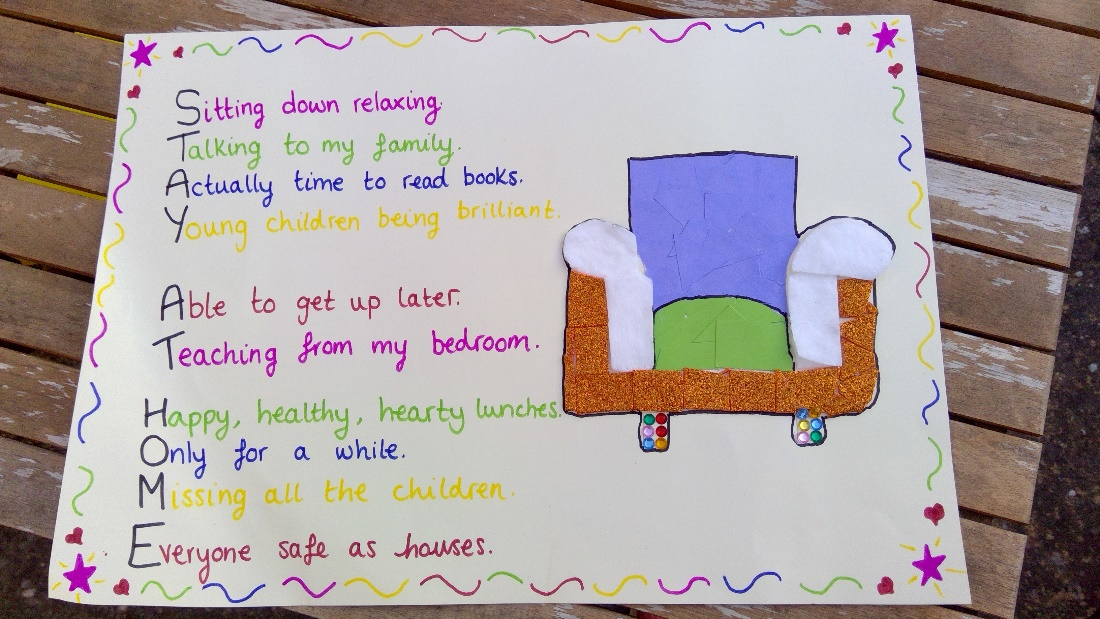 Sitting down relaxing.
Talking to my family.
Actually time to read books.
Young children being brilliant.
Able to get up later.
Teaching from my bedroom.
Happy, healthy, hearty lunches.
Only for a while.
Missing all the children.
Everyone safe as houses.